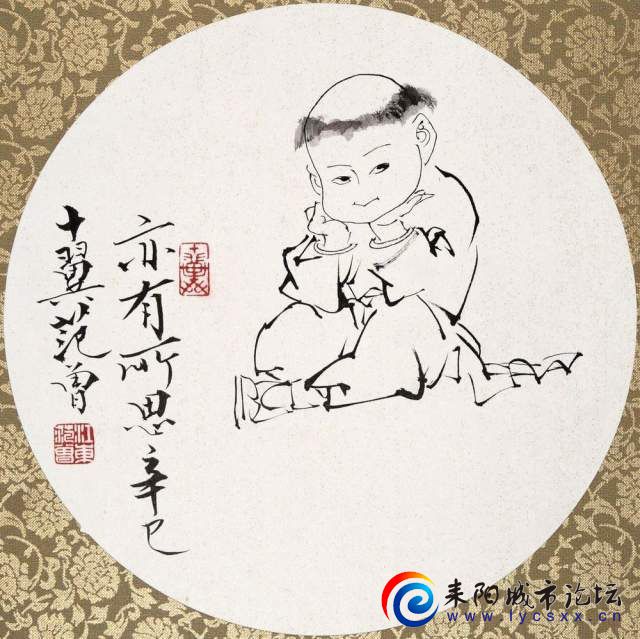 亦有所思辛巳
十翼范曾
十翼
江東范曾
耒阳城市论坛
www.lycsxx.cn